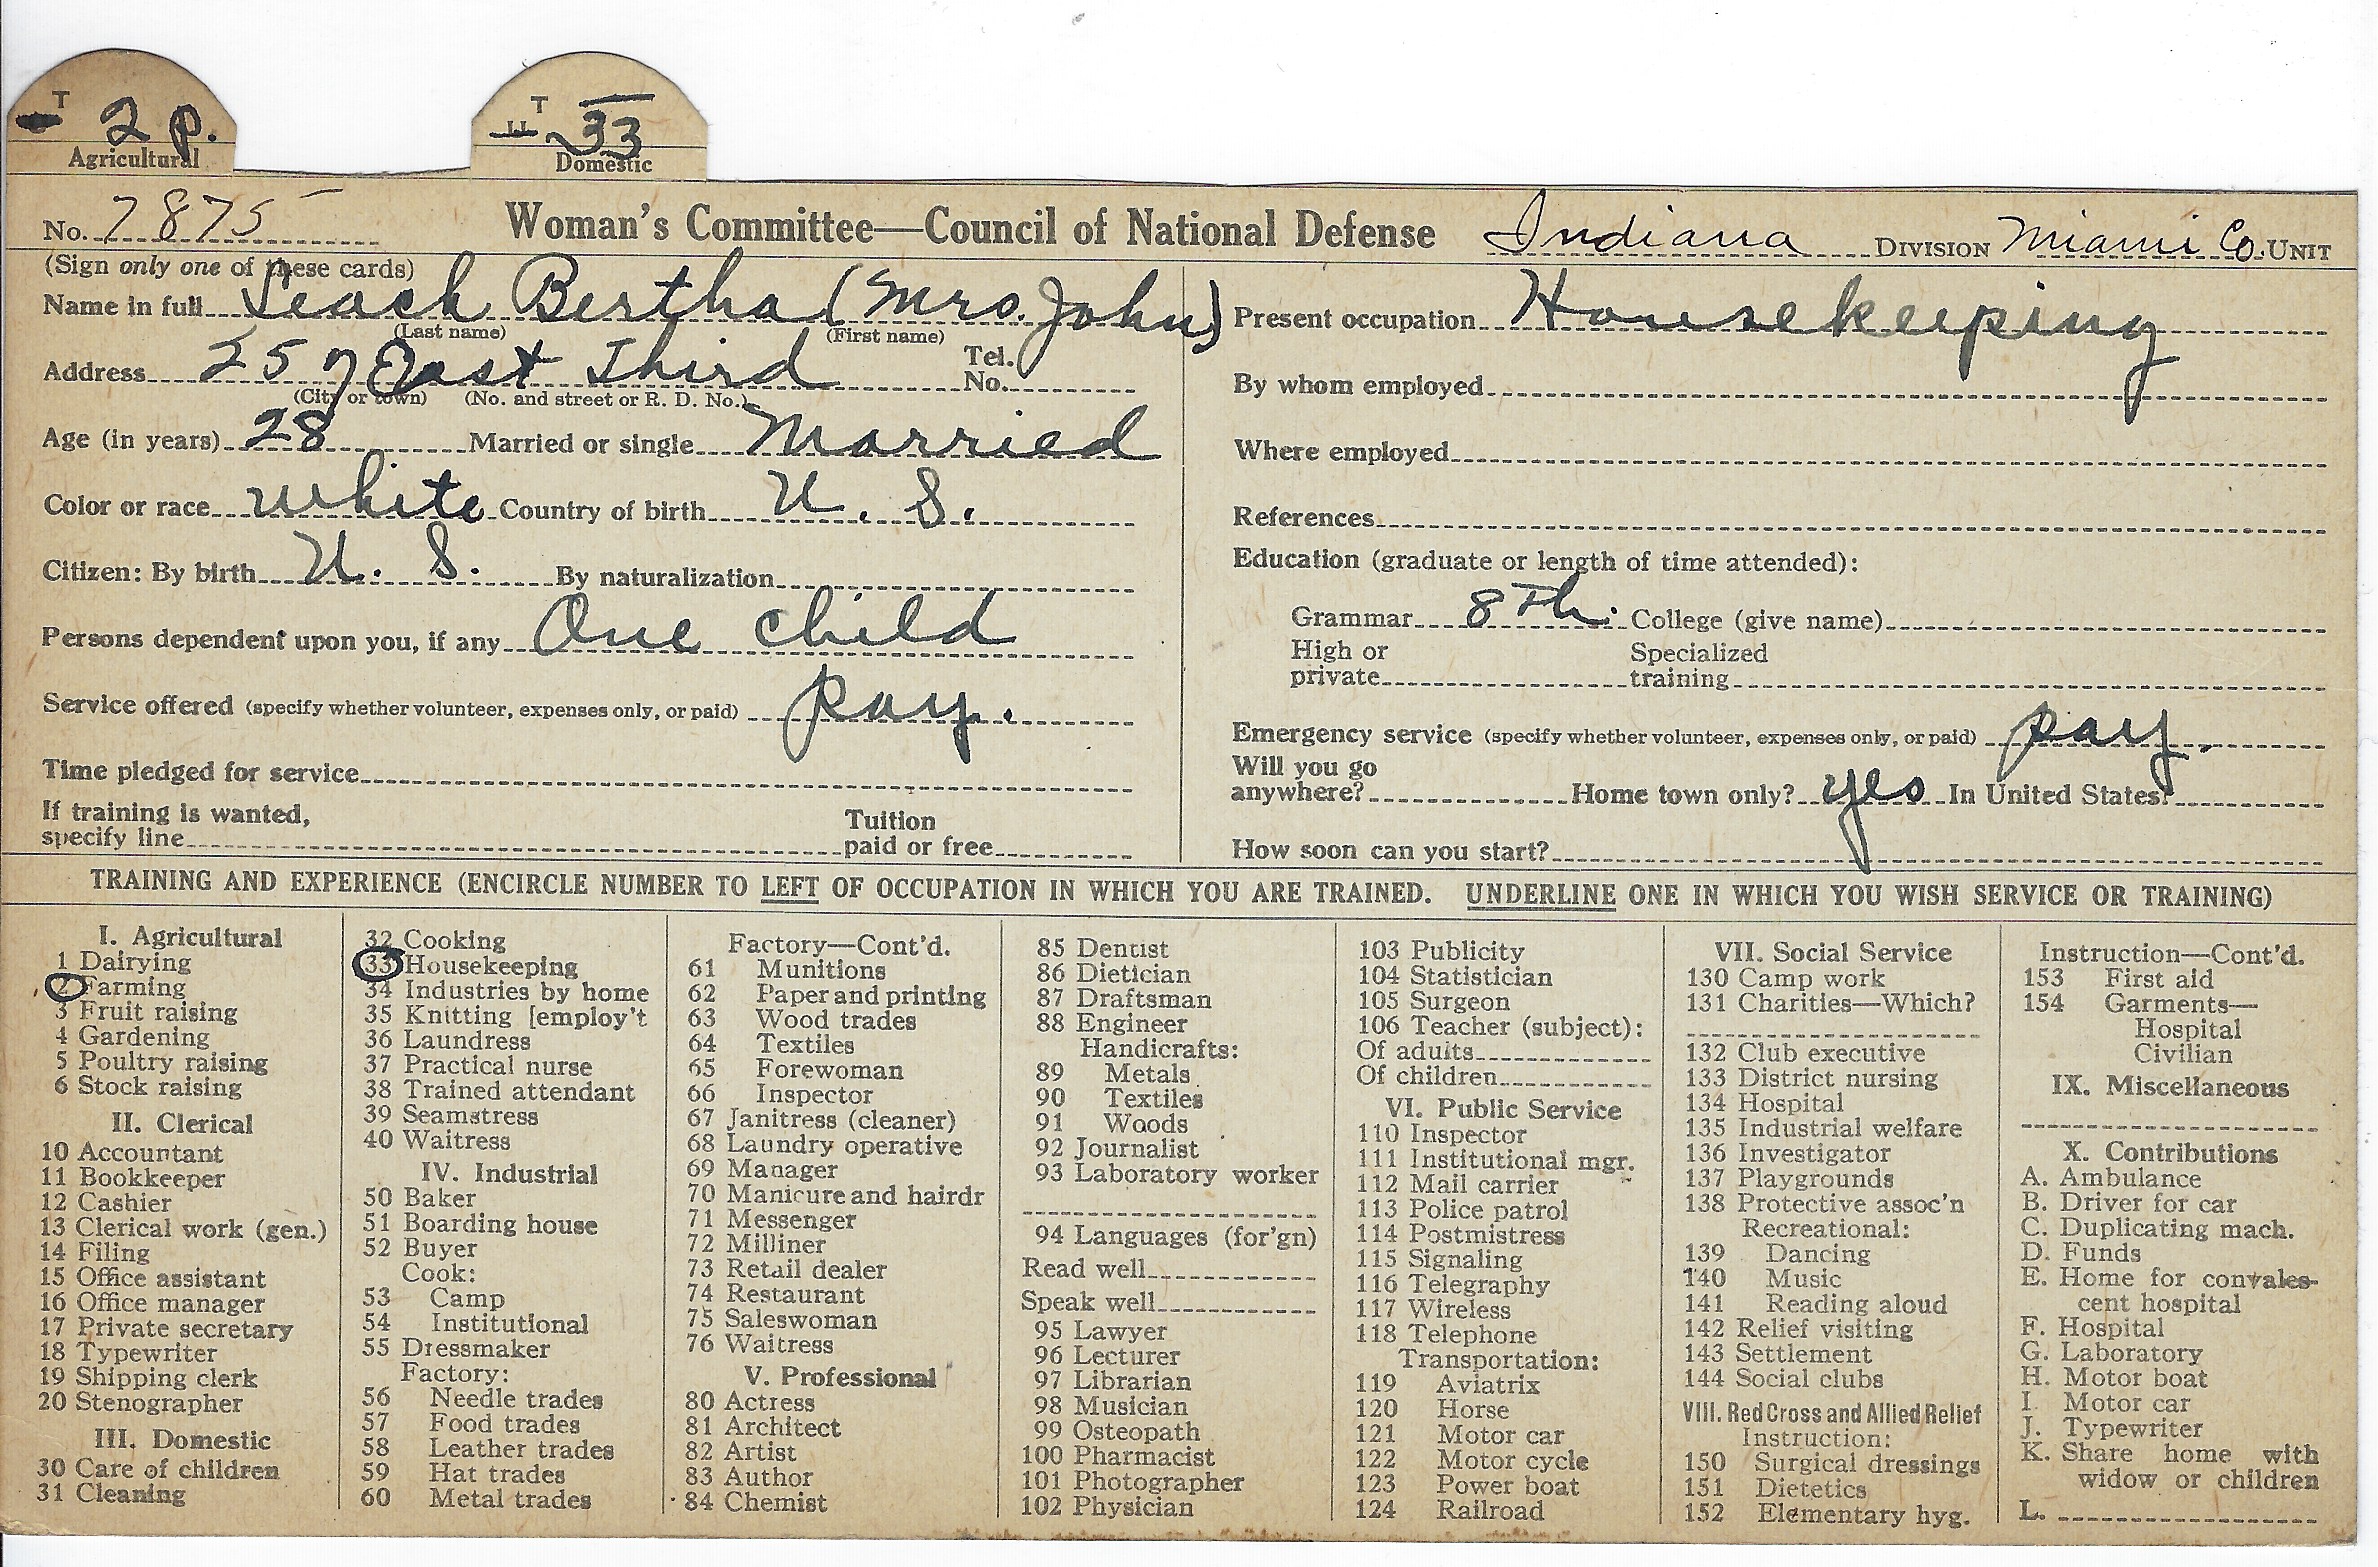 T 2 p. T 33
Agricultural Domestic
No. 7875 Woman's Committee—Council of National Defense Indiana DIVISION Miami Co. UNIT
(Sign only one of these cards)
Name in full Leach Bertha (Mrs. John)
(Last name) (First name)
Address 257 East Third Tel. No.
(City or town) (No. and street or R. D. No.)
Age (in years) 28 Married or single Married
Color or race white Country of birth U. S.
Citizen: By birth U. S. By naturalization
Persons dependent upon you, if any One child
Service offered (specify whether volunteer, expenses only, or paid) pay.
Time pledged for service
If training is wanted,
specify line Tuition paid or free
Present occupation Housekeeping
By whom employed
Where employed
References
Education (graduate or length of time attended):
Grammar 8th. College (give name)
High or private Specialized training
Emergency service (specify whether volunteer, expenses only, or paid) pay.
Will you go
anywhere? Home town only? yes In United States?
How soon can you start?
TRAINING AND EXPERIENCE (ENCIRCLE NUMBER TO LEFT OF OCCUPATION IN WHICH YOU ARE TRAINED. UNDERLINE ONE IN WHICH YOU WISH SERVICE OR TRAINING)
I. Agricultural
1 Dairying
2 Farming
3 Fruit raising
4 Gardening
5 Poultry raising
6 Stock raising
II. Clerical
10 Accountant
11 Bookkeeper
12 Cashier
13 Clerical work (gen.)
14 Filing
15 Office assistant
16 Office manager
17 Private secretary
18 Typewriter
19 Shipping clerk
20 Stenographer
III. Domestic
30 Care of children
31 Cleaning
32 Cooking
33 Housekeeping
34 Industries by home
35 Knitting [employ't
36 Laundress
37 Practical nurse
38 Trained attendant
39 Seamstress
40 Waitress
IV. Industrial
50 Baker
51 Boarding house
52 Buyer
Cook:
53 Camp
54 Institutional
55 Dressmaker
Factory:
56 Needle trades
57 Food trades
58 Leather trades
59 Hat trades
60 Metal trades
Factory—Cont'd.
61 Munitions
62 Paper and printing
63 Wood trades
64 Textiles
65 Forewoman
66 Inspector
67 Janitress (cleaner)
68 Laundry operative
69 Manager
70 Manicure and hairdr
71 Messenger
72 Milliner
73 Retail dealer
74 Restaurant
75 Saleswoman
76 Waitress
V. Professional
80 Actress
81 Architect
82 Artist
83 Author
84 Chemist
85 Dentist
86 Dietician
87 Draftsman
88 Engineer
Handicrafts:
89 Metals
90 Textiles
91 Woods
92 Journalist
93 Laboratory worker
94 Languages (for'gn)
Read well
Speak well
95 Lawyer
96 Lecturer
97 Librarian
98 Musician
99 Osteopath
100 Pharmacist
101 Photographer
102 Physician
103 Publicity
104 Statistician
105 Surgeon
106 Teacher (subject):
Of adults
Of children
VI. Public Service
110 Inspector
111 Institutional mgr.
112 Mail carrier
113 Police patrol
114 Postmistress
115 Signaling
116 Telegraphy
117 Wireless
118 Telephone
Transportation:
119 Aviatrix
120 Horse
121 Motor car
122 Motor cycle
123 Power boat
124 Railroad
VII. Social Service
130 Camp work
131 Charities—Which?
132 Club executive
133 District nursing
134 Hospital
135 Industrial welfare
136 Investigator
137 Playgrounds
138 Protective assoc'n
Recreational:
139 Dancing
140 Music
141 Reading aloud
142 Relief visiting
143 Settlement
144 Social clubs
VIII. Red Cross and Allied Relief
Instruction:
150 Surgical dressings
151 Dietetics
152 Elementary hyg.
Instruction—Cont'd.
153 First aid
154 Garments—
Hospital
Civilian
IX. Miscellaneous
X. Contributions
A. Ambulance
B. Driver for car
C. Duplicating mach.
D. Funds
E. Home for convales-
cent hospital
F. Hospital
G. Laboratory
H. Motor boat
I. Motor car
J. Typewriter
K. Share home with
widow or children
L.